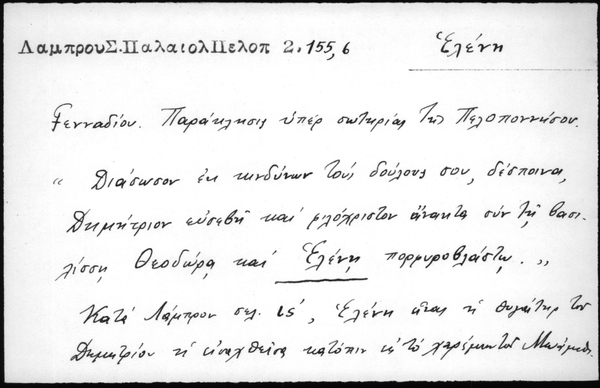 ΛαμπρουΣ.ΠαλαιολΠελοπ 2.155,6 Ἑλένη
Γενναδίου. Παράκλησις ὑπὲρ σωτηρίας τῆς Πελοποννήσου.
« Διάσωσον ἐκ κινδύνων τοὺς δούλους σου, δέσποινα,
Δημήτριον εὐσεβῆ καὶ φιλόχριστον ἄνακτα σὺν τῇ βασι-
λίσσῃ Θεοδώρᾳ καὶ Ἑλένῃ πορφυροβλάστῳ. »
Κατὰ Λάμπρον σελ. ιε΄, Ἑλένη εἶναι ἡ θυγάτηρ τοῦ
Δημητρίου ἡ εἰσαχθεῖσα κατόπιν εἰς τὸ χαρέμιον τοῦ